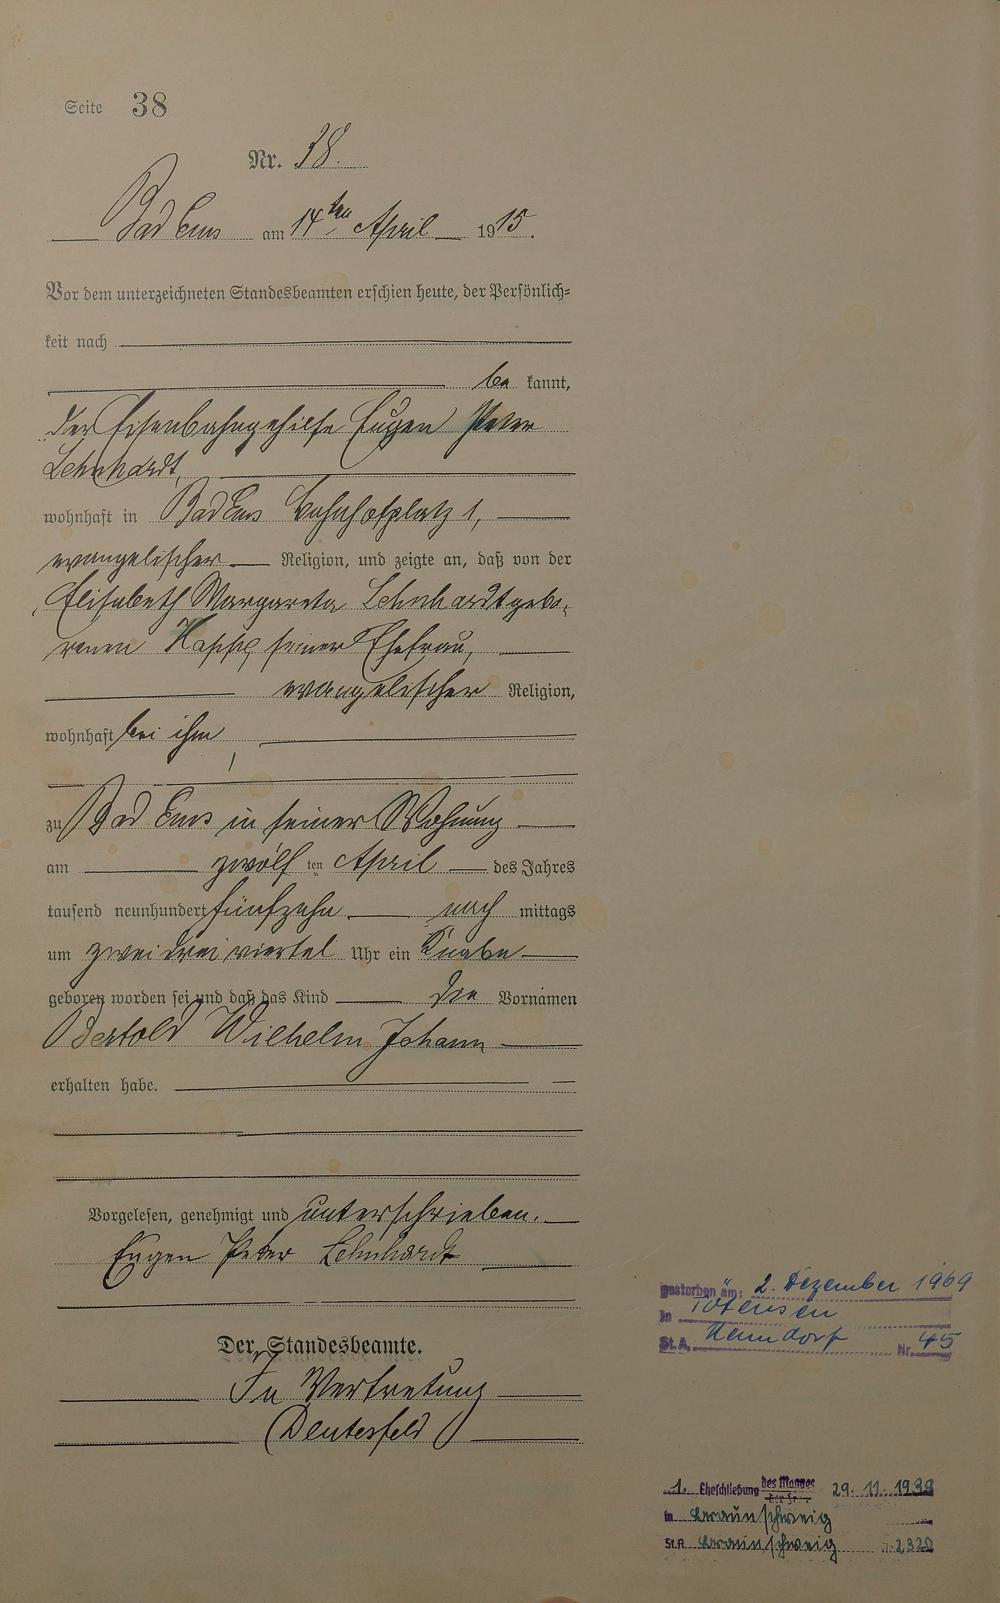 Seite 38
Nr. 38.
Bad Ems am 14ten April 1915.
Vor dem unterzeichneten Standesbeamten erschien heute, der Persönlich=
keit nach
be kannt,
der Eisenbahngehilfe Eugen Peter
Lehnhardt,
wohnhaft in Bad Ems Bahnhofplatz 1,
evangelischer Religion, und zeigte an, daß von der
Elisabeth Margareta Lehnhardt gebo-
renen Happ, seiner Ehefrau,
evangelischer Religion,
wohnhaft bei ihm,
zu Bad Ems in seiner Wohnung
am zwölf ten April des Jahres
tausend neunhundert fünfzehn nach mittags
um zwei drei viertel Uhr ein Knabe
geboren worden sei und daß das Kind die Vornamen
Bertold Wilhelm Johann
erhalten habe.
Vorgelesen, genehmigt und unterschrieben.
Eugen Peter Lehnhardt
gestorben am: 2. Dezember 1969
in Tötensen
St.A. Nenndorf Nr. 45
Der Standesbeamte.
In Vertretung
1. Eheschließung des Mannes 29. 11. 1939
in Braunschweig
St.A. Braunschweig 2320